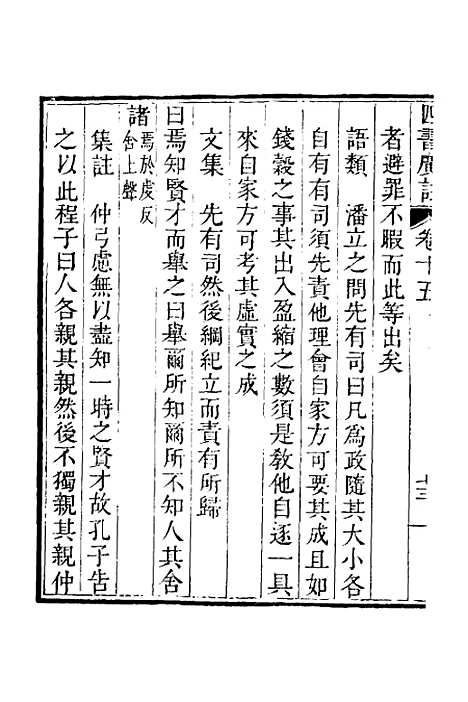 四書廣註 卷十五
者避罪不暇而此等出矣
語類　潘立之問先有司曰凡爲政隨其大小各
自有有司須先責他理會自家方可要其成且如
錢穀之事其出入盈縮之數須是敎他自逐一具
來自家方可考其虛實之成
文集　先有司然後綱紀立而責有所歸
曰焉知賢才而舉之曰舉爾所知爾所不知人其舍
諸焉於虔反
舍上聲
集註　仲弓慮無以盡知一時之賢才故孔子告
之以此程子曰人各親其親然後不獨親其親仲